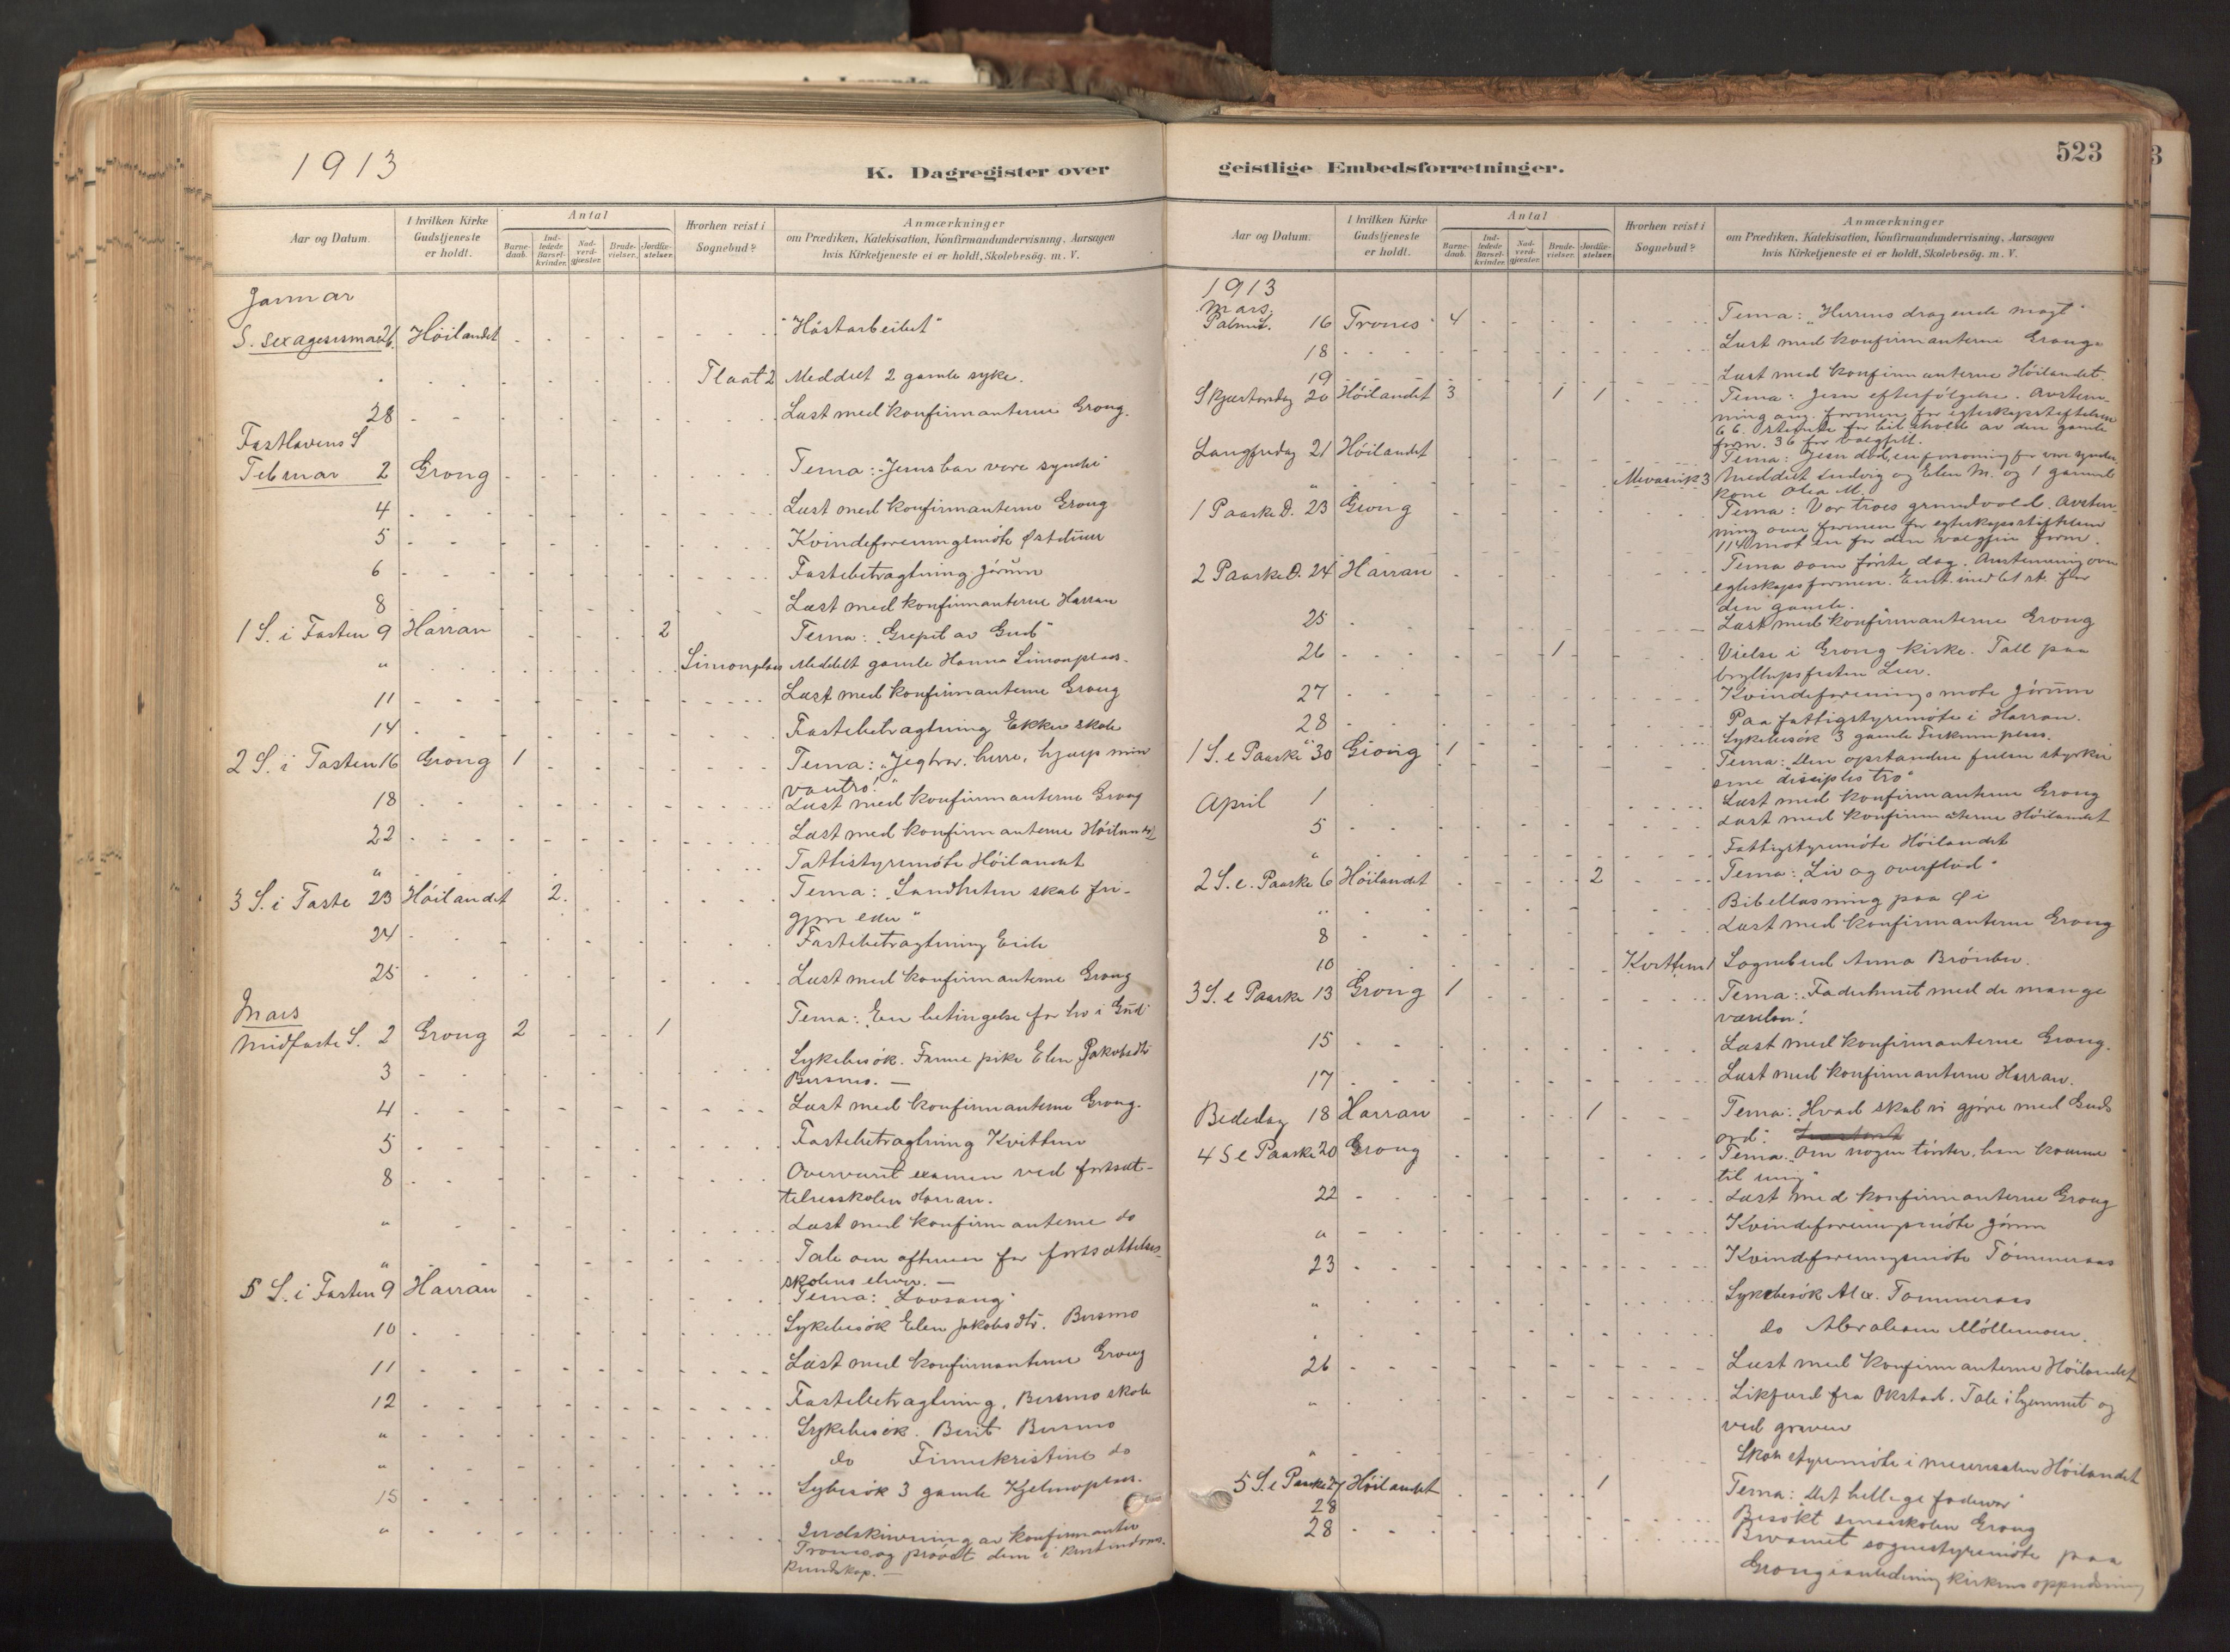 1913
K. Dagregister over
Aar og Datum.
I hvilken Kirke
Gudstjeneste
er holdt.
Antal
Barne-
daab.
Ind-
ledede
Barsel-
kvinder.
Nad-
verd-
gjæster.
Brude-
vielser.
Jordfæ-
stelser.
Hvorhen reist i
Sognebud?
Anmærkninger
om Prædiken, Katekisation, Konfirmandundervisning, Aarsagen
hvis Kirketjeneste ei er holdt, Skolebesög. m. V.
Januar
S. sexagesima 26. Höilandet "Höstarbeidet"
Flaat 2 Meddelt 2 gamle syke.
28 Læst med konfirmanterne Grong.
Fastlavens S
Februar 2 Grong Tema: "Jesus bar vore synder"
4 Læst med konfirmanterne Grong
5 Kvindeforeningsmöte
6 Fastebetragtning Jörum
8 Læst med konfirmanterne Harran
1 S. i Fasten 9 Harran 2 Tema: "Grepet av Gud"
" Simonplass Meddelt gamle Hanna Simonplass.
11 Læst med konfirmanterne Grong
14 Fastebetragtning Ekker skole
2 S. i Fasten 16 Grong 1 Tema: "Jeg tror, herre, hjælp min
vantro!"
18 Læst med konfirmanterne Grong
22 Læst med konfirmanterne Höilandet
" Fattistyremöte Höilandet
3 S. i Faste 23 Höilandet 2. Tema: "Sandheten skal fri-
gjøre eder"
24 Fastebetragtning Eide
25 Læst med konfirmanterne Grong
Mars
Midfaste S. 2 Grong 2 1 Tema: "En betingelse for liv i Gud"
3 Sykebesök. pike Elen Jakobsdtr
Bersmo. —
4 Læst med konfirmanterne Grong.
5 Fastebetragtning Kvittem
8 Overværet examen ved fortsæt-
telsesskolen Harran.
" Læst med konfirmanterne do
" Tale om aftenen for fortsættelses-
skolens elever. —
5 S. i Fasten 9 Harran Tema: "Lovsang"
10 Sykebesök Elen Jakobsdtr. Bersmo
11 Læst med konfirmanterne Grong
12 Fastebetragtning, Bersmo skole
" Sykebesök. Berit Bersmo
" do Finnekristine do
15 Sykebesök 3 gamle
" Indskrivning av konfirmanter
Trones og prövet dem i kristendoms-
kundskap. —
523
geistlige Embedsforretninger.
Aar og Datum.
I hvilken Kirke
Gudstjeneste
er holdt.
Antal
Barne-
daab.
Ind-
ledede
Barsel-
kvinder.
Nad-
verd-
gjæster.
Brude-
vielser.
Jordfæ-
stelser.
Hvorhen reist i
Sognebud?
Anmærkninger
om Prædiken, Katekisation, Konfirmandundervisning, Aarsagen
hvis Kirketjeneste ei er holdt, Skolebesög. m. V.
1913
Mars.
Palmes. 16 Trones 4 Tema: "Herrens dragende magt"
18 Læst med konfirmanterne Grong
19 Læst med konfirmanterne Höilandet
Skjærtorsdag 20 Höilandet 3 1 1 Tema: Jesu efterfölgelse. Avstem-
ning ang. formen for egteskapsstiftelsen
66 stemte for bibehold av den gamle
form. 36 for valgfritt.
Langfredag 21 Höilandet Tema: Jesu död, en forsoning for vore synder.
" 3 Meddelt Ludvig og Elen M. og 1 gammel
kone Olea M.
1 Paaske D. 23 Grong Tema: Vor troes grundvold. Avstem-
ning over formen for egteskapsstiftelsen
114 mot en for den valgfrie form.
2 Paaske D. 24 Harran Tema som förste dag. Avstemning over
egteskapsformen. Enst. med 61 st. for
den gamle.
25 Læst med konfirmanterne Grong
26 1 Vielse i Grong kirke. Tale paa
bryllupsfesten Lier.
27 Kvindeforenings möte Jörum
28 Paa fattigstyremöte i Harran.
" Sykebesök 3 gamle
1 S. e Paaske 30 Grong 1 Tema: "Den opstandne frelser styrker
sine disciples tro"
April 1 Læst med konfirmanterne Grong
5 Læst med konfirmanterne Höilandet
" Fattigstyremöte Höilandet
2 S. e. Paaske 6 Höilandet 2 Tema: "Liv og overflod"
" Bibellæsning paa Øi
8 Læst med konfirmanterne Grong
10 Kvittem 1 Sognebud Anna Bröndbo.
3 S. e Paaske 13 Grong 1 Tema: "Faderhuset med de mange
værelser".
15 Læst med konfirmanterne Grong.
17 Læst med konfirmanterne Harran.
Bededag 18 Harran 1 Tema: "Hvad skal vi gjöre med Guds
ord".
4 S e Paaske 20 Grong Tema. "Om nogen törster, han komme
til mig"
22 Læst med konfirmanterne Grong
" Kvindeforeningsmöte Jörum
23 Kvindeforeningsmöte Tömmeraas
" Sykebesök Alex. Tömmeraas
" do Abraham Möllemoen.
26 Læst med konfirmanterne Höilandet
" Likfærd fra Okstad. Tale i hjemmet og
ved graven
" Skolestyremöte i Höilandet
5 S. e Paaske 27 Höilandet 1 Tema: "Det hellige fadervor"
28 Besökt Grong
28 Bivaanet sognestyremöte paa
Grong i anledning kirkens oppudsning